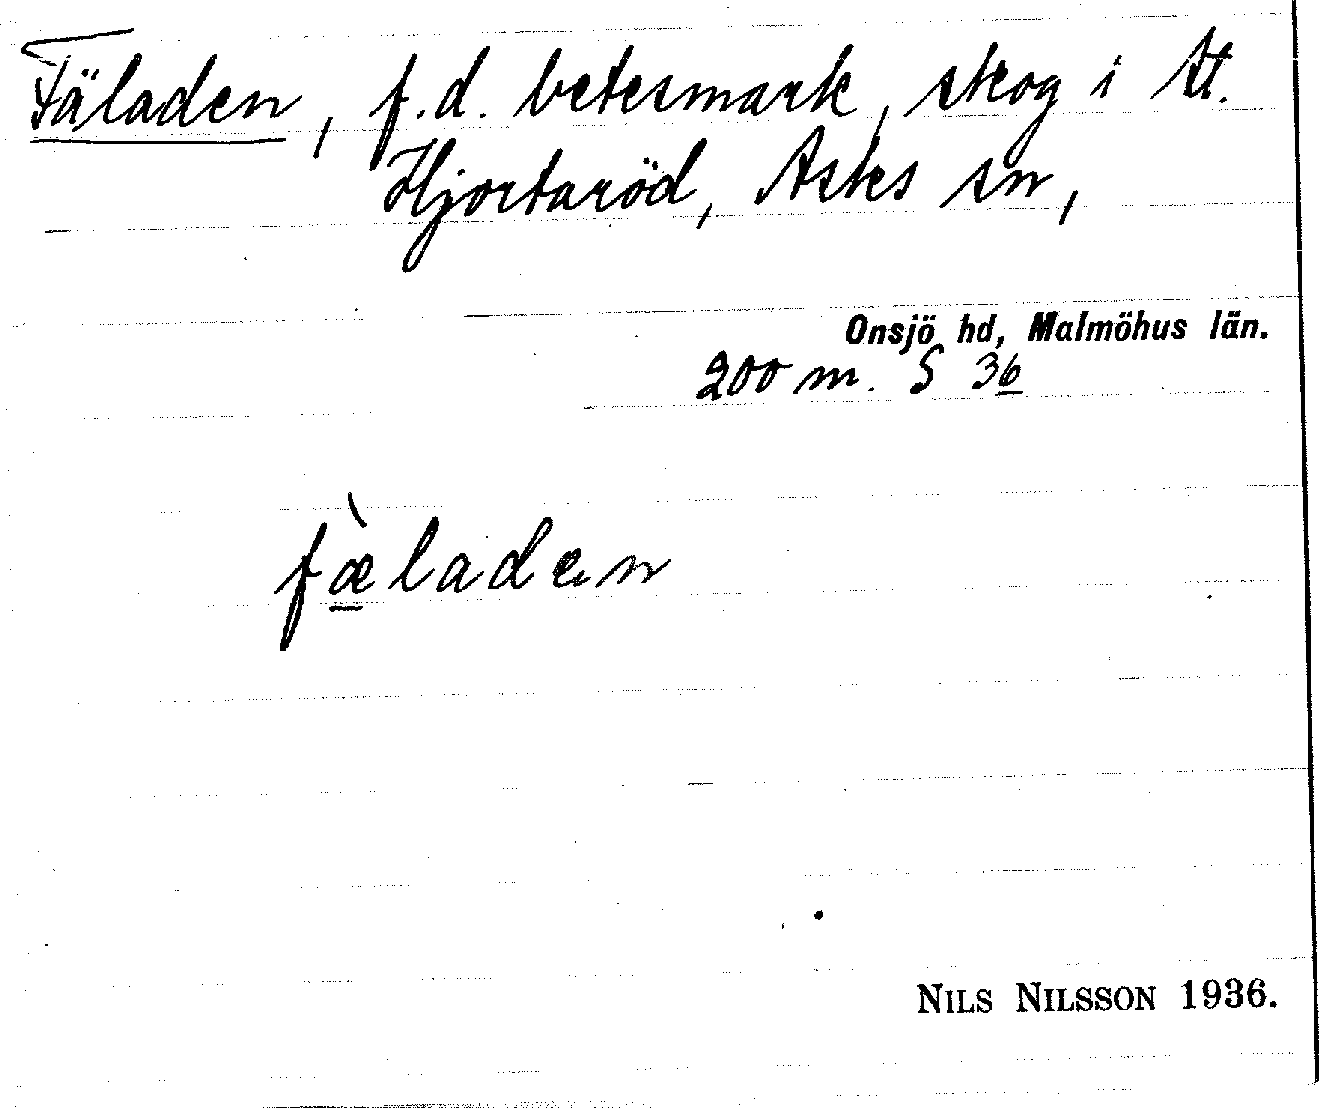 Fäladen, f.d. betesmark, skog i St.
Hjortaröd, Asks sn,
Onsjö hd, Malmöhus län.
200 m. S 36
fæ̀laden
NILS NILSSON 1936.